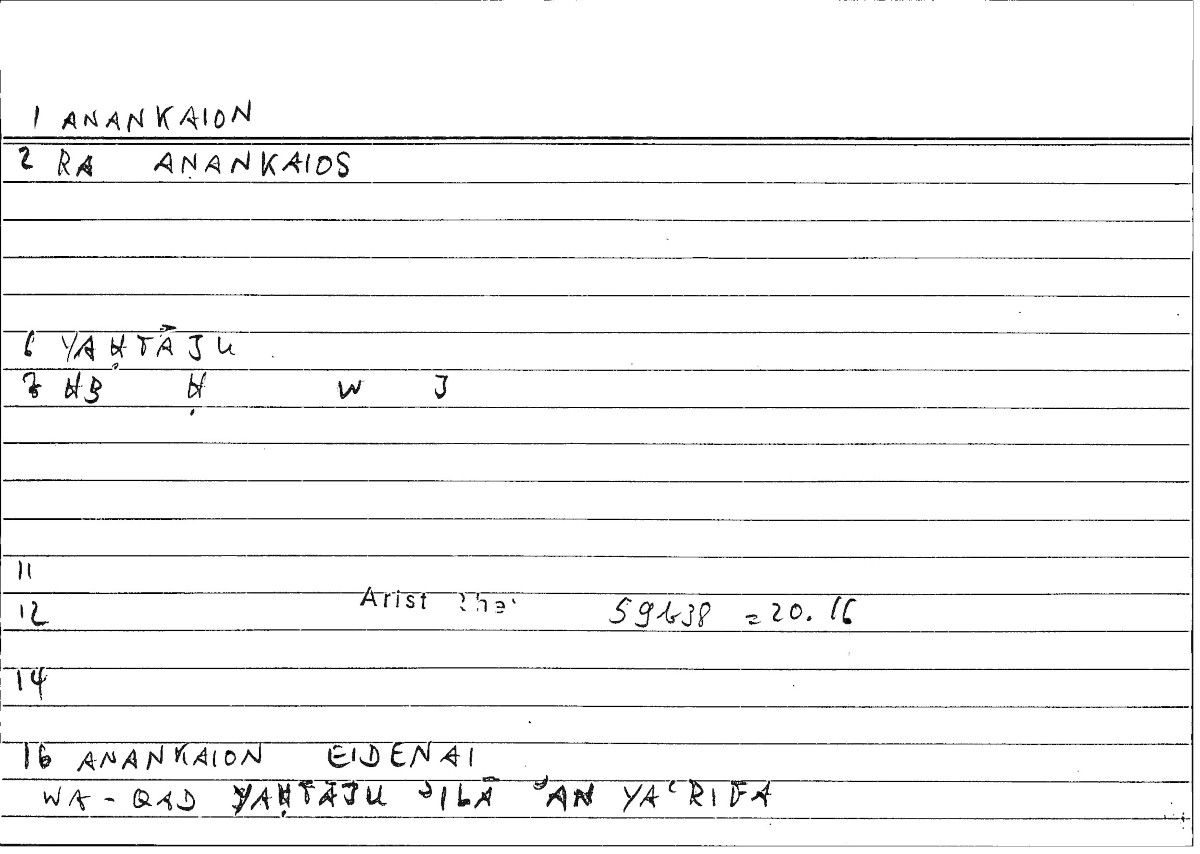 1 ANANKAION
2 RA ANANKAIOS
6 YAḤTĀJU
7 HB Ḥ W J
11
12 Arist Rhet 59b38 = 20.16
14
16 ANANKAION EIDENAI
WA-QAD YAḤTĀJU ʾILĀ ʾAN YAʿRIFA